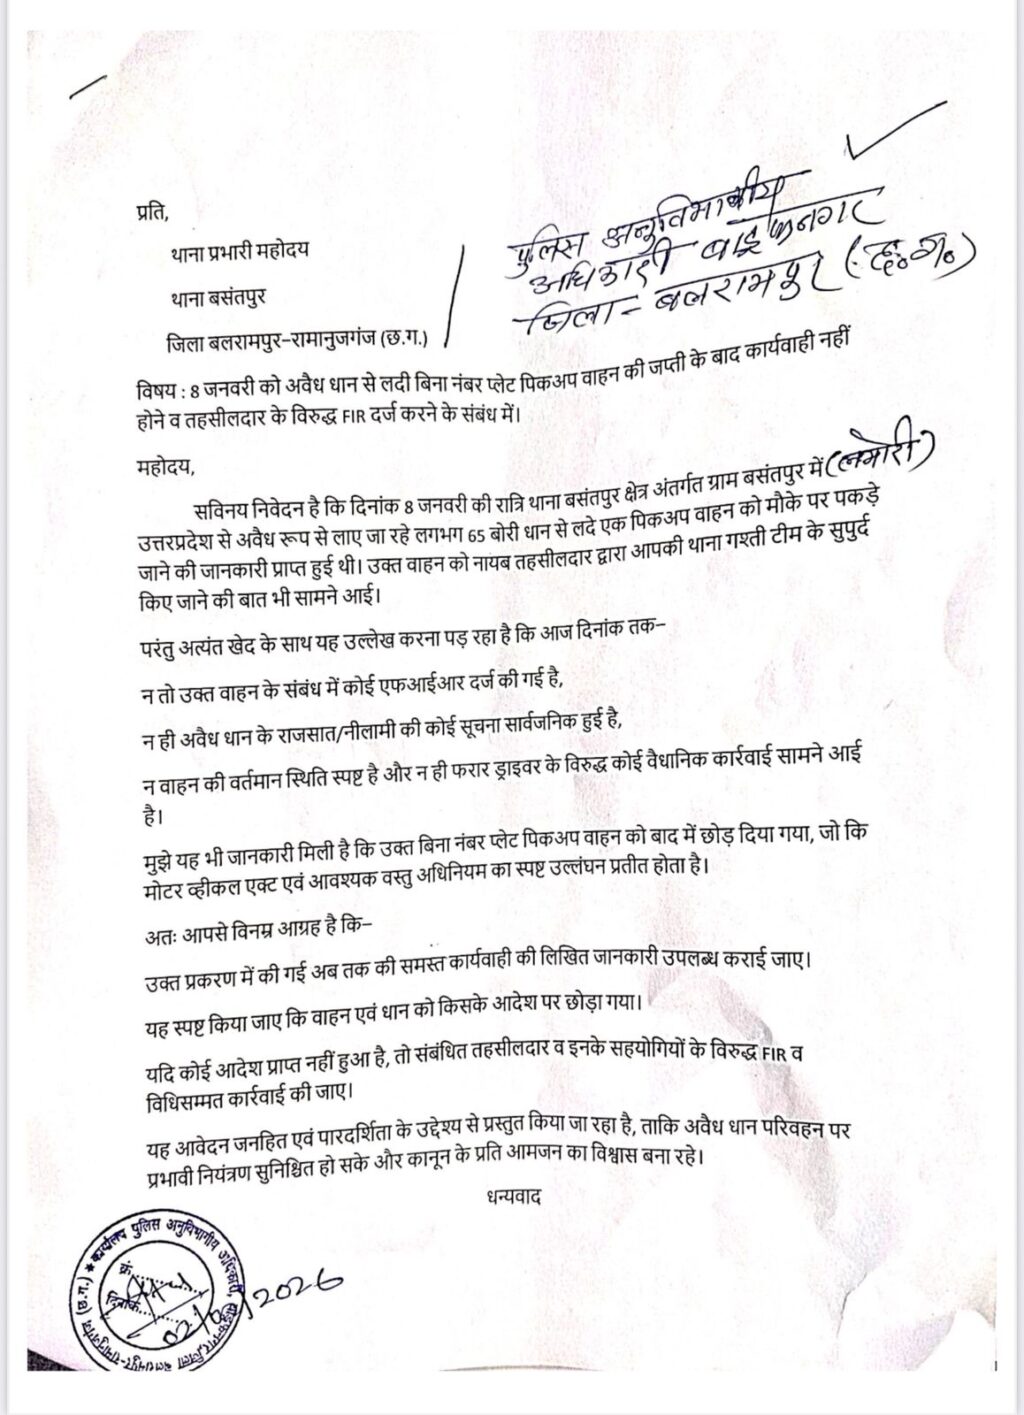 प्रति,
थाना प्रभारी महोदय
थाना बसंतपुर
जिला बलरामपुर-रामानुजगंज (छ.ग.)
पुलिस अनुविभागीय
अधिकारी वाड्रफनगर
जिला - बलरामपुर (छ.ग.)
विषय : 8 जनवरी को अवैध धान से लदी बिना नंबर प्लेट पिकअप वाहन की जप्ती के बाद कार्यवाही नहीं
होने व तहसीलदार के विरुद्ध FIR दर्ज करने के संबंध में।
महोदय,
सविनय निवेदन है कि दिनांक 8 जनवरी की रात्रि थाना बसंतपुर क्षेत्र अंतर्गत ग्राम बसंतपुर में (लमोरी)
उत्तरप्रदेश से अवैध रूप से लाए जा रहे लगभग 65 बोरी धान से लदे एक पिकअप वाहन को मौके पर पकड़े
जाने की जानकारी प्राप्त हुई थी। उक्त वाहन को नायब तहसीलदार द्वारा आपकी थाना गश्ती टीम के सुपुर्द
किए जाने की बात भी सामने आई।
परंतु अत्यंत खेद के साथ यह उल्लेख करना पड़ रहा है कि आज दिनांक तक-
न तो उक्त वाहन के संबंध में कोई एफआईआर दर्ज की गई है,
न ही अवैध धान के राजसात/नीलामी की कोई सूचना सार्वजनिक हुई है,
न वाहन की वर्तमान स्थिति स्पष्ट है और न ही फरार ड्राइवर के विरुद्ध कोई वैधानिक कार्रवाई सामने आई
है।
मुझे यह भी जानकारी मिली है कि उक्त बिना नंबर प्लेट पिकअप वाहन को बाद में छोड़ दिया गया, जो कि
मोटर व्हीकल एक्ट एवं आवश्यक वस्तु अधिनियम का स्पष्ट उल्लंघन प्रतीत होता है।
अतः आपसे विनम्र आग्रह है कि-
उक्त प्रकरण में की गई अब तक की समस्त कार्यवाही की लिखित जानकारी उपलब्ध कराई जाए।
यह स्पष्ट किया जाए कि वाहन एवं धान को किसके आदेश पर छोड़ा गया।
यदि कोई आदेश प्राप्त नहीं हुआ है, तो संबंधित तहसीलदार व इनके सहयोगियों के विरुद्ध FIR व
विधिसम्मत कार्रवाई की जाए।
यह आवेदन जनहित एवं पारदर्शिता के उद्देश्य से प्रस्तुत किया जा रहा है, ताकि अवैध धान परिवहन पर
प्रभावी नियंत्रण सुनिश्चित हो सके और कानून के प्रति आमजन का विश्वास बना रहे।
धन्यवाद
कार्यालय पुलिस अनुविभागीय अधिकारी, वाड्रफनगर, जिला बलरामपुर-रामानुजगंज (छ.ग.)
क्रं.
दिनांक
2026